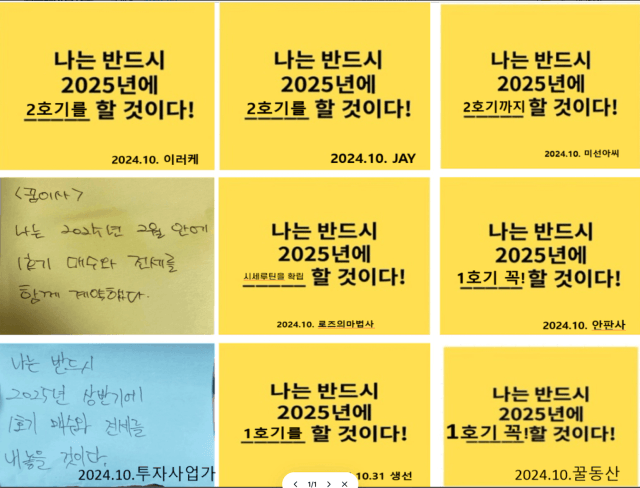 나는 반드시
2025년에
2호기를 할 것이다!
2024.10. 이러케
나는 반드시
2025년에
2호기를 할 것이다!
2024.10. JAY
나는 반드시
2025년에
2호기까지 할 것이다!
2024.10. 미선아씨
<꿈이사>
나는 2025년 2월 안에
1호기 매수와 전세를
함께 계약했다.
나는 반드시
2025년에
시세루틴을 확립 할 것이다!
2024.10. 로즈의마법사
나는 반드시
2025년에
1호기 꼭!할 것이다!
2024.10. 안판사
나는 반드시
2025년 상반기에
1호기 매수와 전세를
내놓을 것이다.
2024.10.투자사업가
나는 반드시
2025년에
1호기를 할 것이다!
10.31 생선
1/1
나는 반드시
2025년에
1호기 꼭!할 것이다!
2024.10.꿀동산